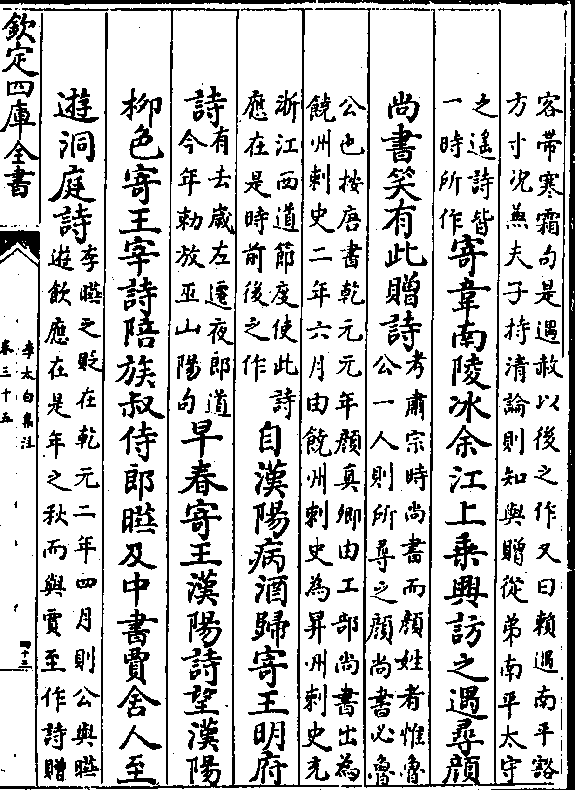 客帶寒霜句是遇赦以後之作又曰賴遇南平豁
方寸况兼夫子持清論則知與贈從弟南平太守
之遥詩皆
一時所作
寄韋南陵冰余江上乗興訪之遇尋顔
尚書笑有此贈詩
考肅宗時尚書而顔姓者惟魯
公一人則所尋之顔尚書必魯
公也按唐書乾元元年顔真卿由工部尚書出為
饒州刺史二年六月由饒州刺史為昇州刺史充
浙江西道節度使此詩
應在是時前後之作
自漢陽病酒歸寄王明府
詩
有去嵗左遷夜郎道
今年勅放巫山陽句
早春寄王漢陽詩望漢陽
柳色寄王宰詩陪族叔侍郎曄及中書賈舍人至
遊洞庭詩
李曄之貶在乾元二年四月則公與曄
遊飲應在是年之秋而與賈至作詩贈
欽定四庫全書
李太白集注
卷三十五
四十三